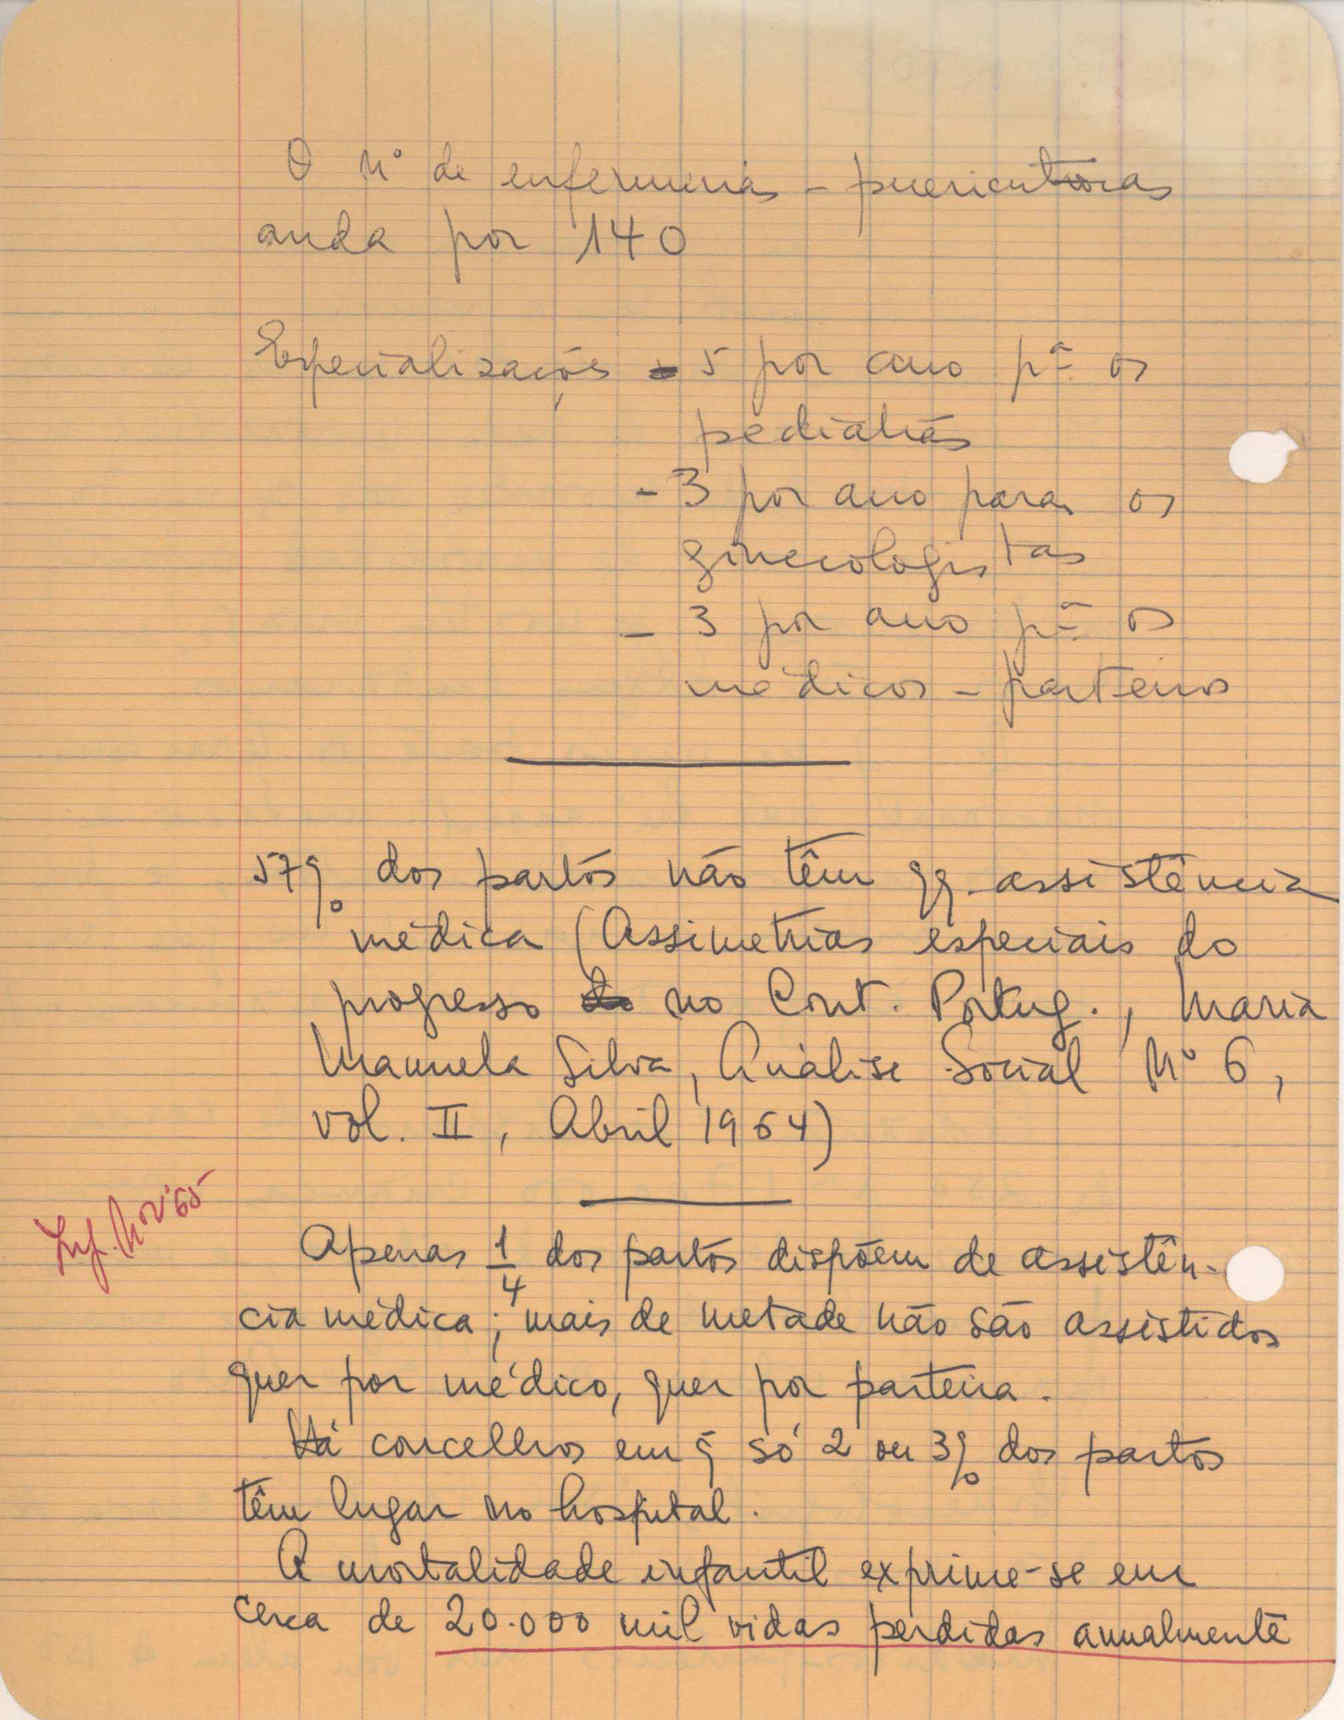 O nº de enfermeiras - puericultoras
anda por 140
Especializações - 5 por ano pª os
pediatras
- 3 por ano para os
ginecologistas
- 3 por ano pª os
médicos - parteiros
57% dos partos não têm qq. assistência
médica (Assimetrias especiais do
progresso do no Cont. Portug., Maria
Manuela Silva, Análise Social Nº 6,
vol. II, Abril 1964)
Inf. Nov. 65
Apenas 1/4 dos partos dispõem de assistên-
cia médica; mais de metade não são assistidos
quer por médico, quer por parteira.
Há concelhos em q̃ só 2 ou 3% dos partos
têm lugar no hospital.
A mortalidade infantil exprime-se em
cerca de 20.000 mil vidas perdidas anualmente